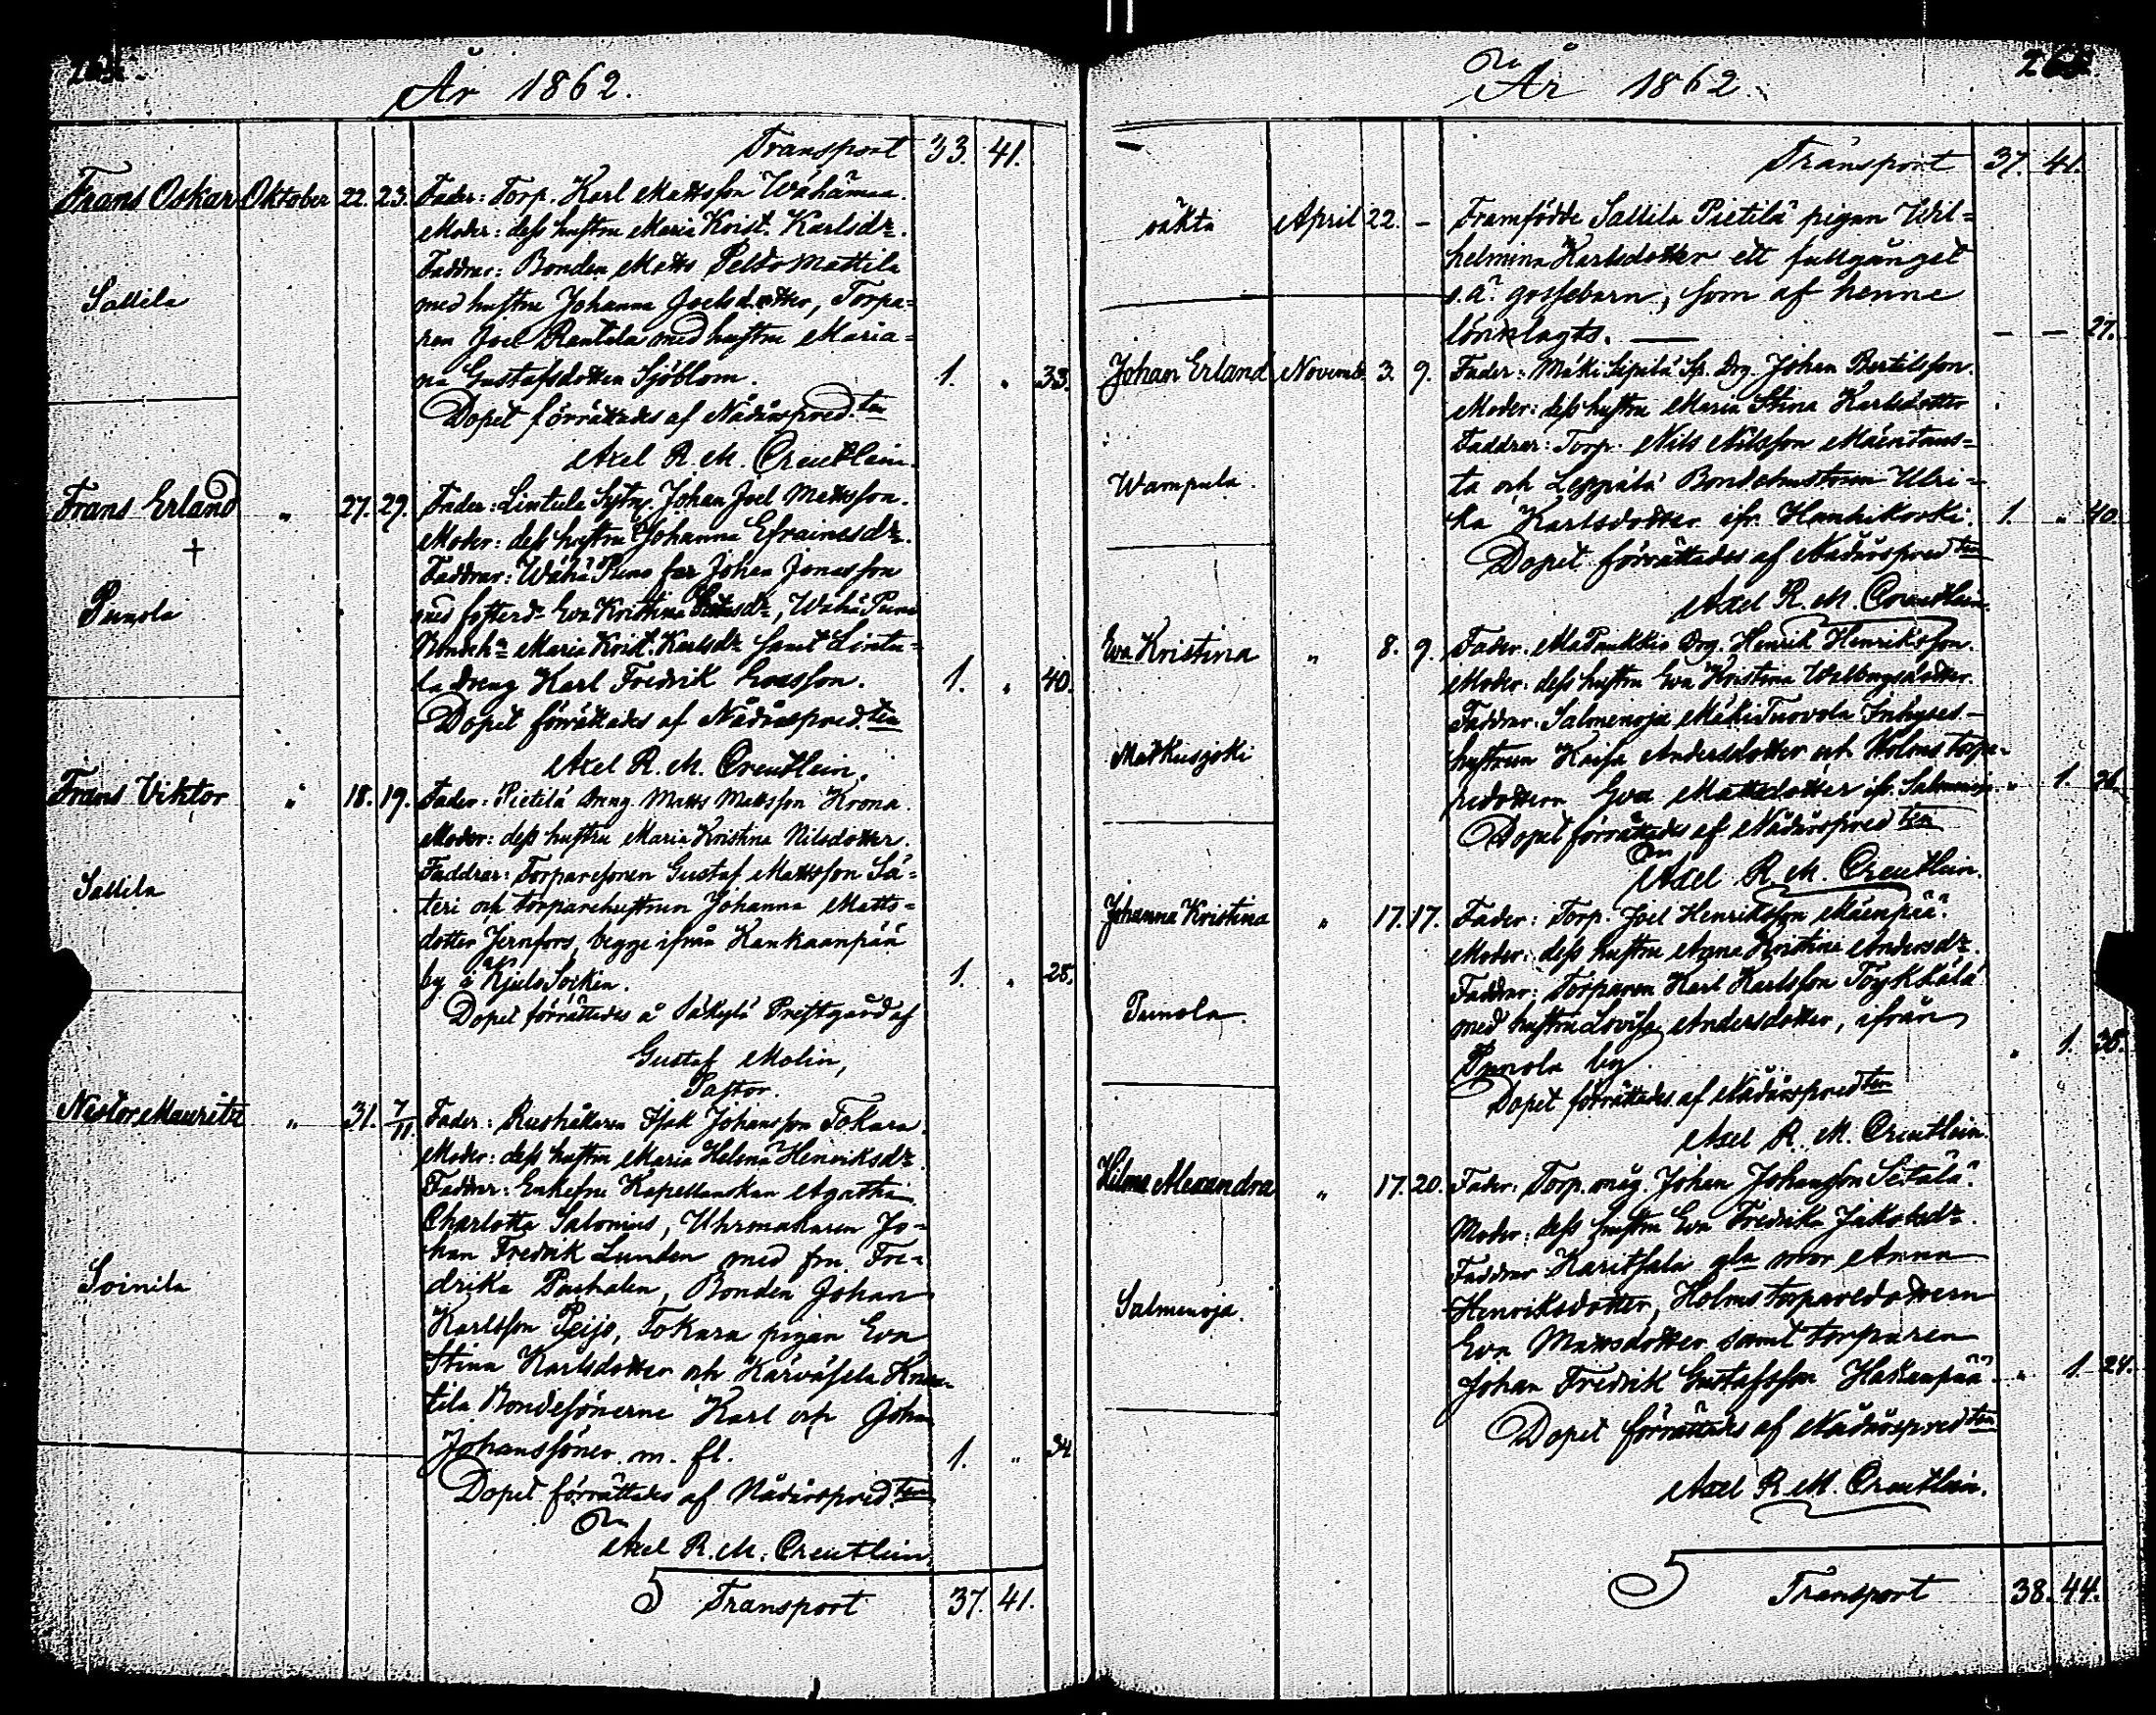 År 1862.
Transport 33. 41.
Frans Oskar Oktober 22. 23. Fader: Torp. Karl Mattsson Wähämaa.
Moder: dess hustru Maria Krist. Karlsdr.
Faddrar: Bonden Matts Peldomattila
Sallila
med hustru Johanna Joelsdotter, Torpa-
ren Joel Rantala med hustru Maria-
na Gustafsdotter Sjöblom. 1. „ 33.
Dopet förrättades af Nådårspred.ten
Axel R. M. Creutlein.
Frans Erland „ 27. 29. Fader: Lintula Sytn. Johan Joel Mattsson.
Moder: dess hustru Johanna Efraimsdr.
†
Faddrar: Wähä Puno far Johan Jonasson
Punola
med fosterdr Eva Kristina, Wähä Puno
Bondeh. Maria Krist. Karlsdr samt Lintu-
la dreng Karl Fredrik. 1. „ 40.
Dopet förrättades af Nådårspred.ten
Axel R. M. Creutlein.
Frans Viktor „ 18. 19. Fader: Pietilä Dreng Matts Mattsson Krona.
Moder: dess hustru Maria Kristina Nilsdotter.
Faddrar: Torparesonen Gustaf Mattsson Sä-
Sallila
teri och torparehustrun Johanna Matts-
dotter Jernfors, begge ifrån Kankaanpää
by i Kjulo Socken. 1. „ 28.
Dopet förrättades å Säkylä Prestgård af
Gustaf Molin,
Pastor.
Nestor Mauritz „ 31. 7/11. Fader: Rusthållaren Isak Johansson Tokara.
Moder: dess hustru Maria Helena Henriksdr.
Faddrar: Enkefru Kapellanskan Agatha
Charlotta Salonius, Uhrmakaren Jo-
han Fredrik Lunden med fru Fre-
Soinila
drika, Bonden Johan
Karlsson Peijo, Tokara pigan Eva
Stina Karlsdotter och Karvasela
tila Bondesönerne Karl och Johan
Johanssöner m. fl. 1. „ 34.
Dopet förrättades af Nådårspred.ten
Axel R. M. Creutlein
Transport 37. 41.
År 1862.
Transport 37. 41.
oäkta April 22. – Framfödde Sallila Pietilä pigan Wil-
helmina Karlsdotter ett fullgånget
o. ä. gossebarn, som af henne
lönnlagts. — — — 27.
Johan Erland Novemb. 3. 9. Fader: Mäki Sipilä Sp. Drg. Johan Bertilsson.
Moder: dess hustru Maria Stina Karlsdotter
Faddrar: Torp. Nils Nilsson Mäentaus-
Wampula.
ta och Leppälä Bondehustrun Ulri-
ka Karlsdotter ifr. Hanhikoski. 1. „ 40.
Dopet förrättades af Nådårspred.ten
Axel R. M. Creutlein.
Eva Kristina „ 8. 9. Fader: Drg. Henrik Henriksson.
Moder: dess hustru Eva Kristina Walborgsdotter.
Faddrar: Salmenoja Mäki Tuovola Inhyses-
Matkusjoki
hustrun Kaisa Andersdotter och Holms torpa-
redottern Eva Mattsdotter ifr. Salmenoja. „ 1. 26.
Dopet förrättades af Nådårspred.ten
Axel R. M. Creutlein.
Johanna Kristina „ 17. 17. Fader: Torp. Joel Henriksson Mäenpää.
Moder: dess hustru Anna Kristina Andersdr.
Faddrar: Torparen Karl Karlsson Töykkälä
Punola.
med hustru Lovisa Andersdotter, ifrån
Punola by. „ 1. 38.
Dopet förrättades af Nådårspred.ten
Axel R. M. Creutlein.
Hilma Alexandra „ 17. 20. Fader: Torp. måg. Johan Johansson Seitälä.
Moder: dess hustru Eva Fredrika Jakobsdr.
Faddrar Karitsala gla mor Anna
Salmenoja.
Henriksdotter, Holms torparedottern
Eva Mattsdotter samt torparen
Johan Fredrik Gustafsson Hakanpää. „ 1. 24.
Dopet förrättades af Nådårspred.ten
Axel R. M. Creutlein.
Transport 38. 44.